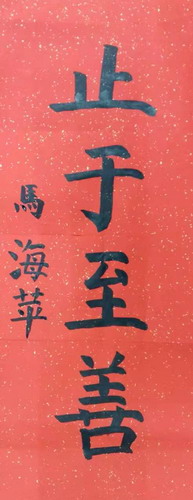 止于至善
馬海苹